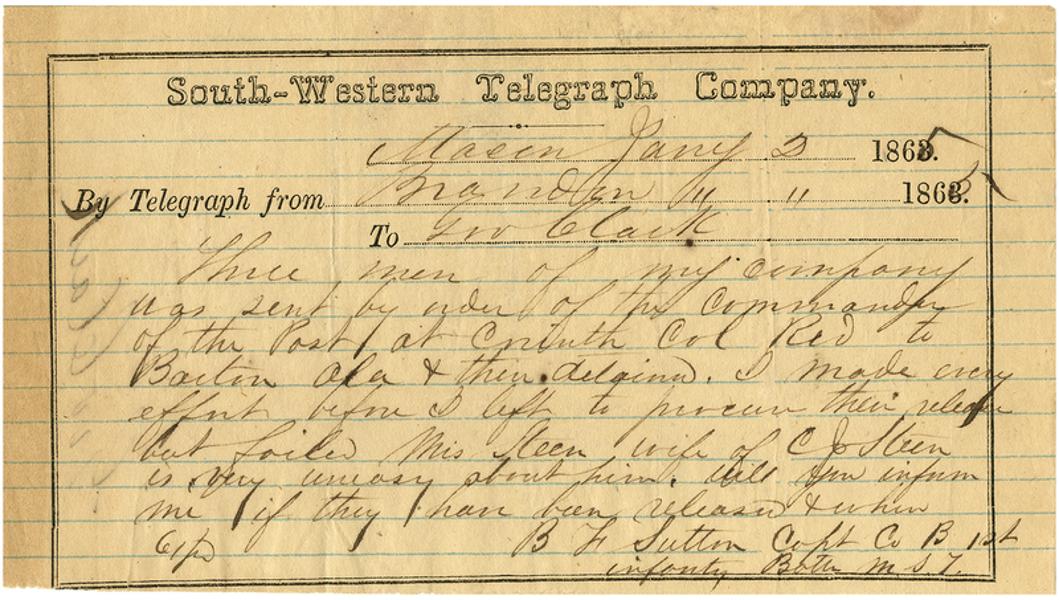 South-Western Telegraph Company.
Macon Jany 2 1865.
By Telegraph from Brandon " " 1865.
To Gov Clark
Three men of my company
was sent by order of the Commander
of the Post at Corinth Col Reid to
Barton Ala & then detained. I made every
effort before I left to procure their release
but failed Mrs Steen wife of C J Steen
is very uneasy about him. Will you inform
me if they have been released & when
B F Sutton Capt Co B 1st
infanty Battn M S T.